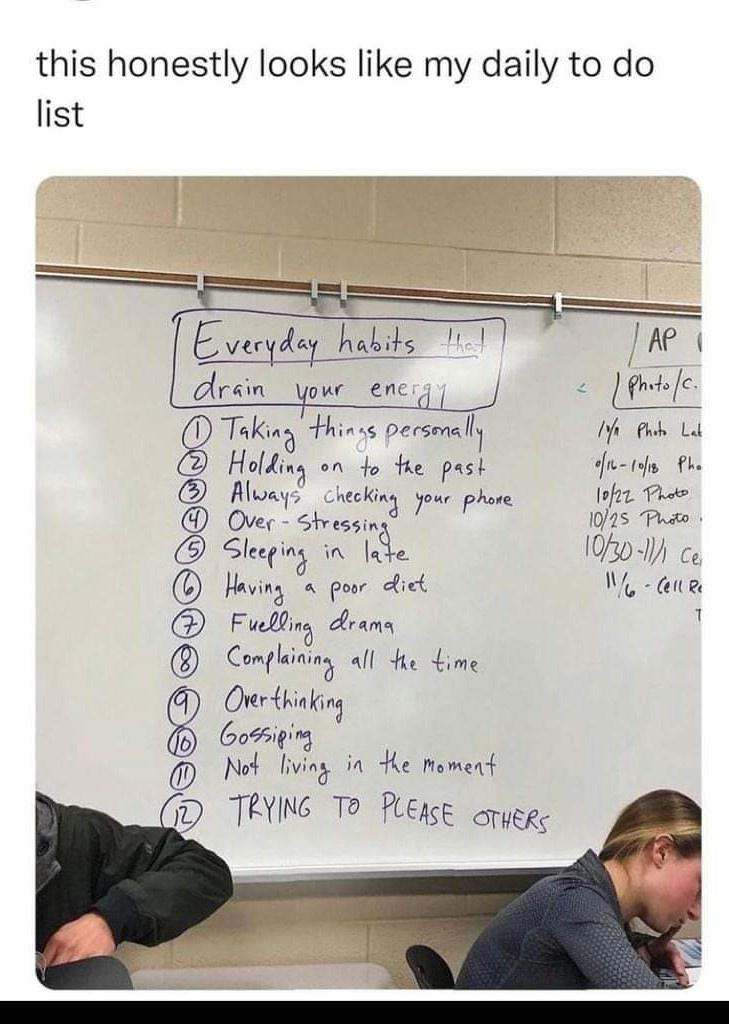 this honestly looks like my daily to do
list
Everyday habits that
drain your energy
① Taking things personally
② Holding on to the past
③ Always checking your phone
④ Over-stressing
⑤ Sleeping in late
⑥ Having a poor diet
⑦ Fuelling drama
⑧ Complaining all the time
⑨ Overthinking
⑩ Gossiping
⑪ Not living in the moment
⑫ TRYING TO PLEASE OTHERS
AP
Photo/C.
Photo Lab
10/22 Photo
10/25 Photo
10/30-11/1 Ce
11/6 - Cell Re
T